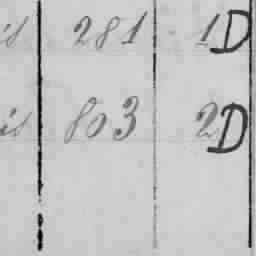 281 1D
803 2D